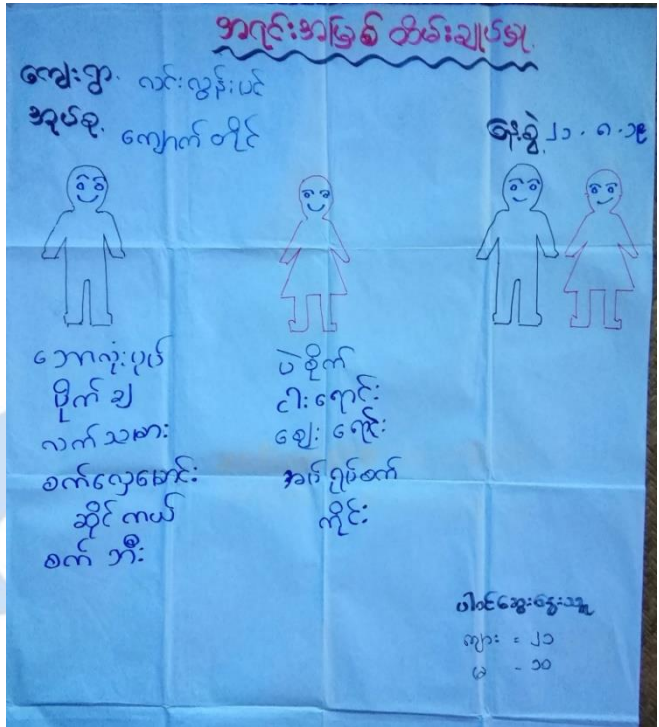 အရင်းအမြစ် ထိမ်းချုပ်မှု
ကျေးရွာ. လင်းလွန်းပင်
အုပ်စု. ကျောက်တိုင်
နေ့စွဲ ၂၁.၈.၁၉
ဘောလုံးပွယ်
ဖိုက်ချ
လက်သမား
စက်လှေမောင်း
ဆိုင်ကယ်
စက်ဘီး
ပဲစိုက်
ငါးရောင်း
ဈေးရောင်း
အပ်ချုပ်စက်
ကိုင်း
ပါဝင်ဆွေးနွေးသူ
ကျား = ၂၁
မ - ၁၀